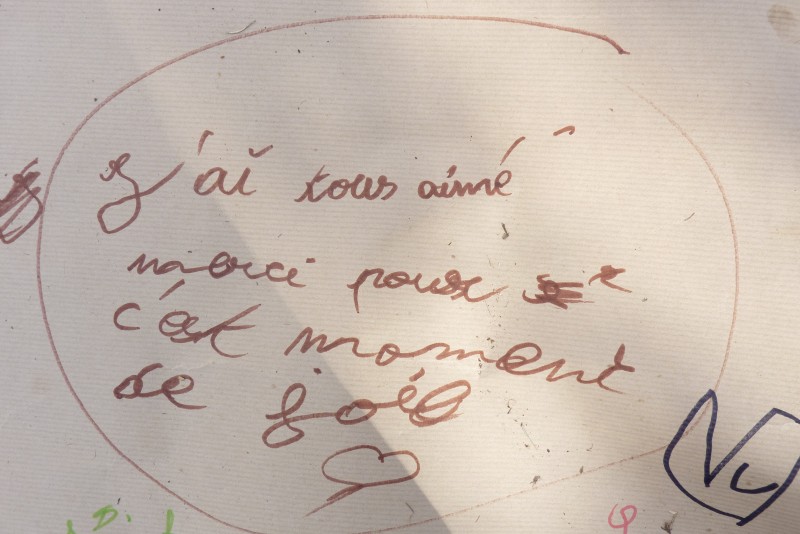 J'ai tous aimé
merci pour
c'est moment
de joie